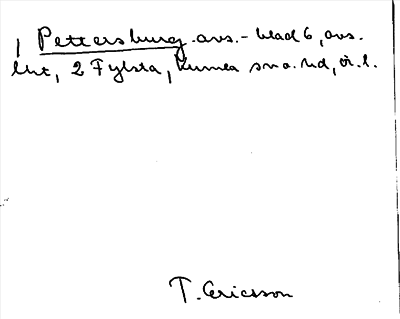 1 Pettersburg. avs. - blad 6, avs.
lht, 2 Fylsta, Kumla sn o. hd, ör. l.
T. Ericsson